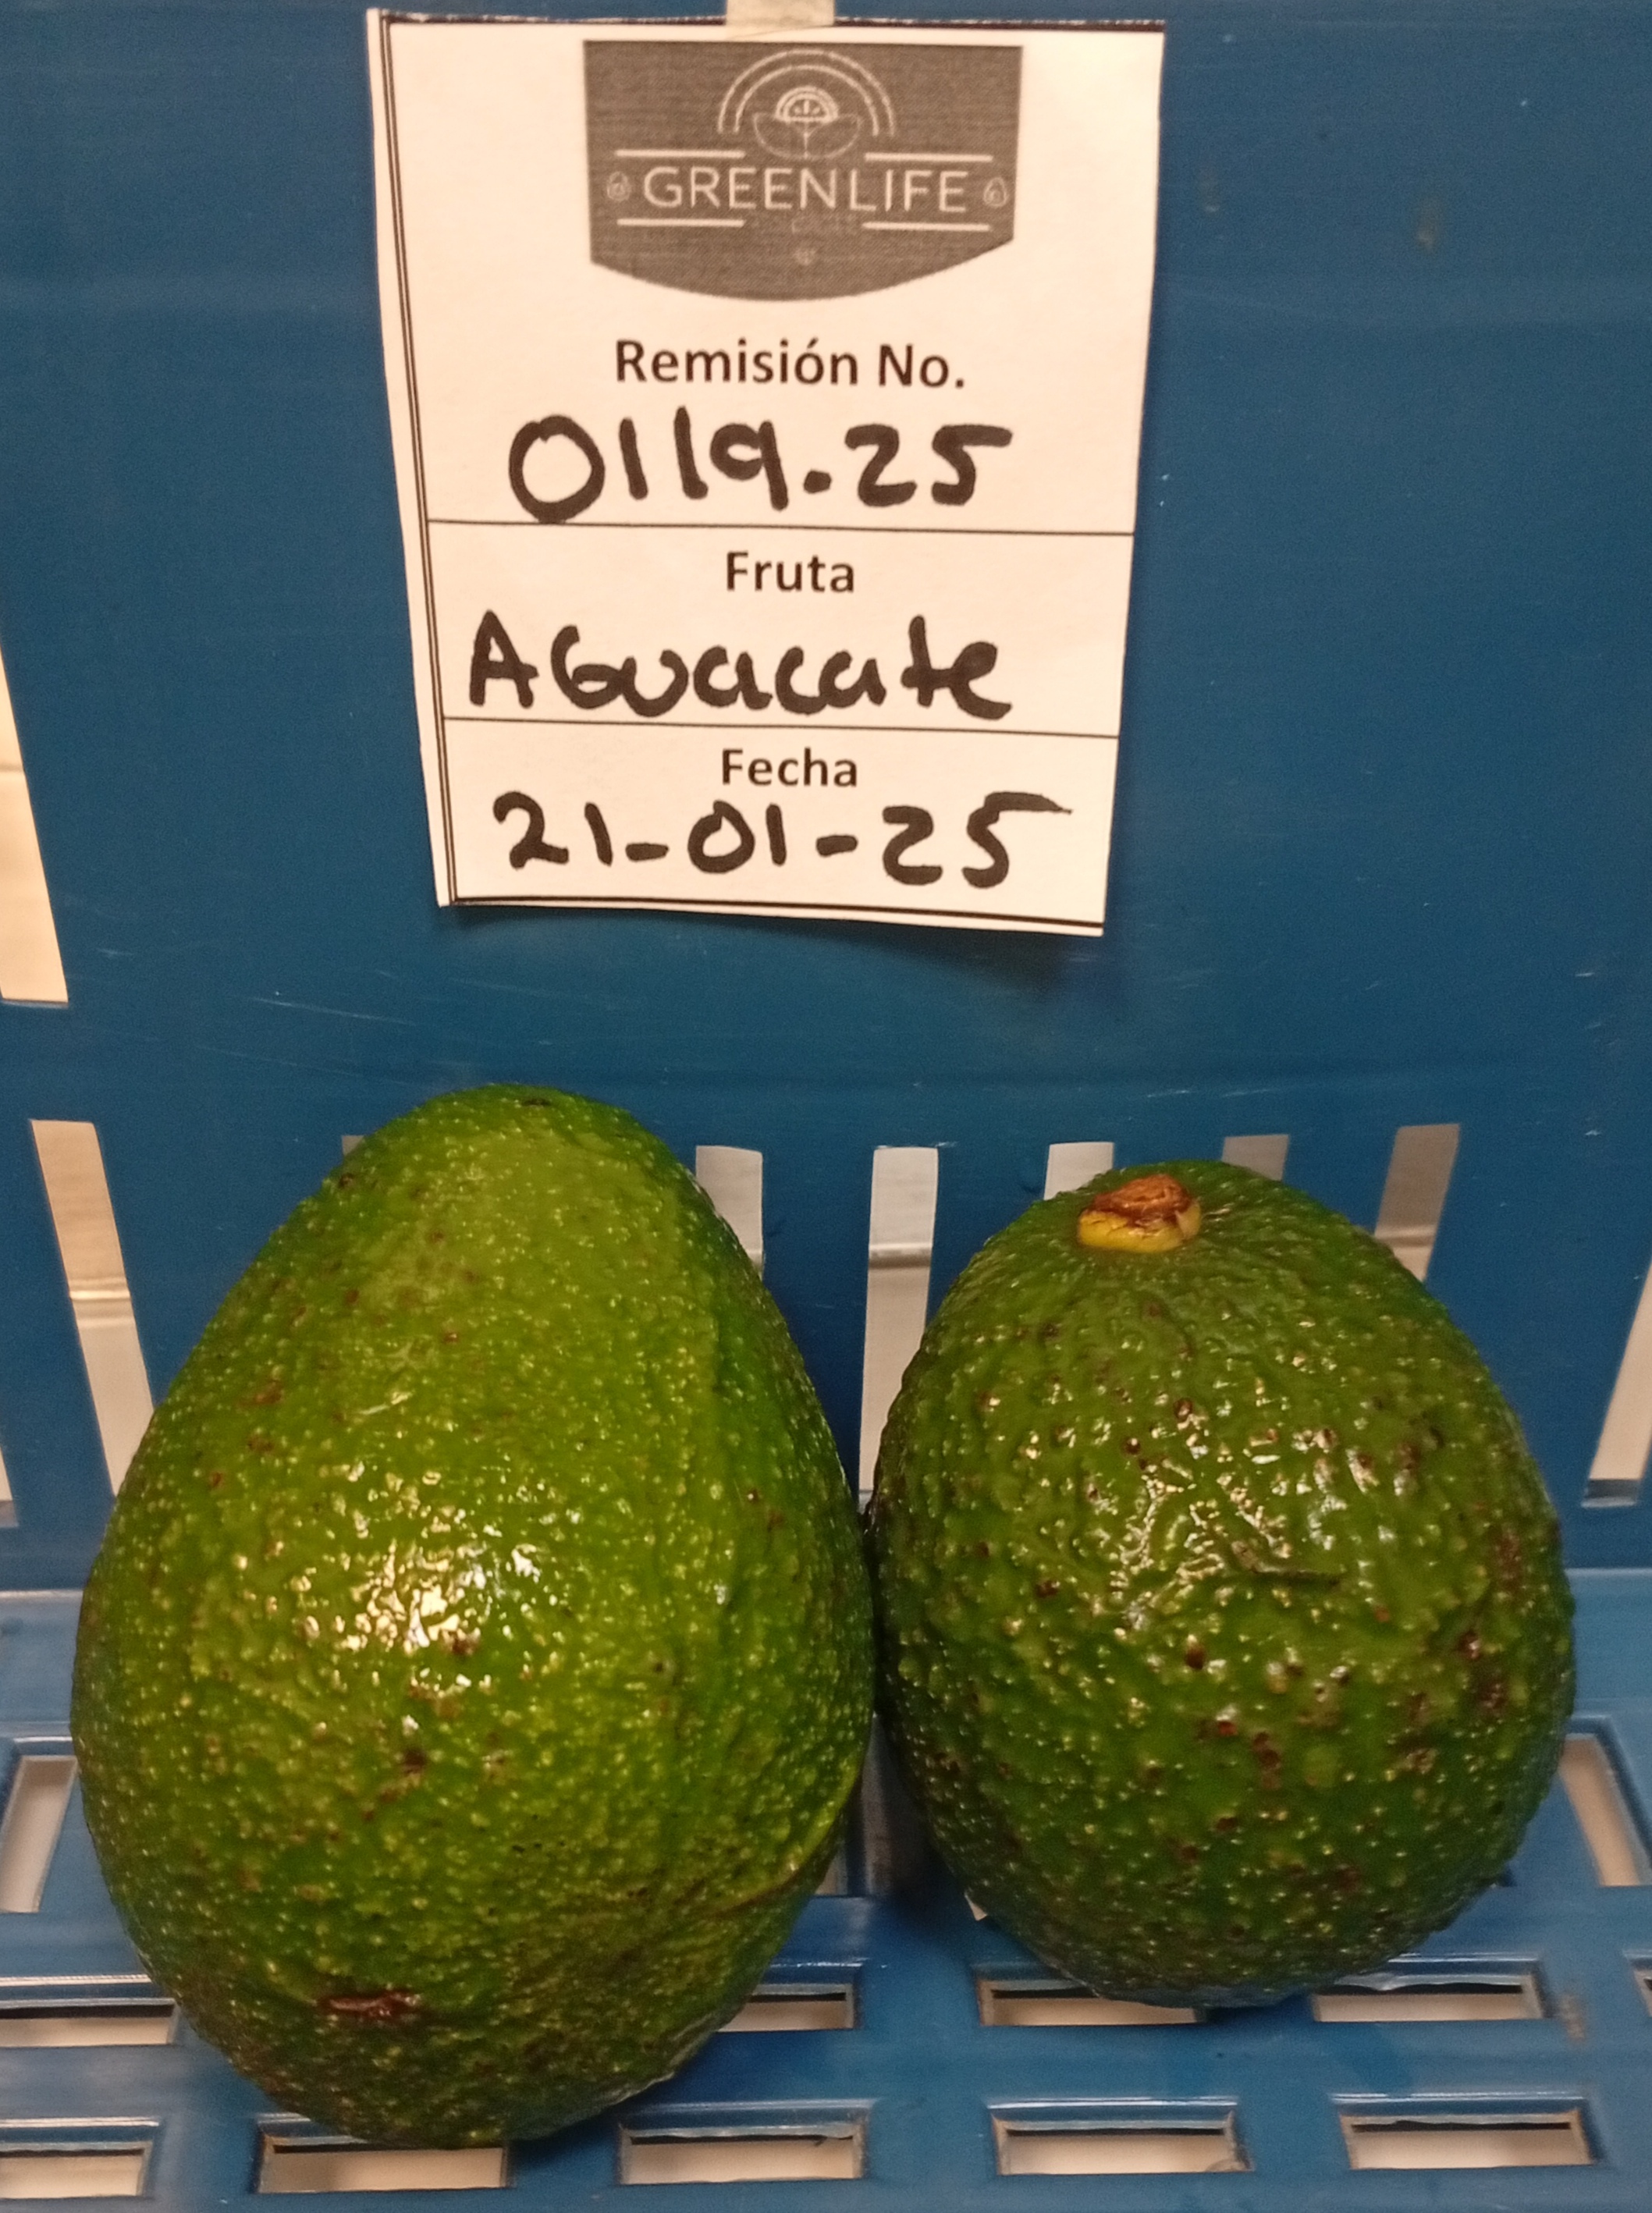 GREENLIFE
Remisión No.
0119.25
Fruta
AGuacate
Fecha
21-01-25